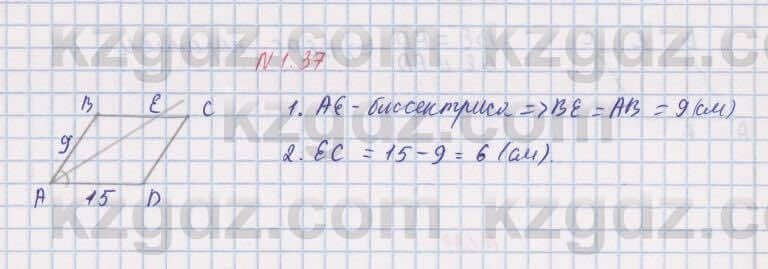 kzgdz.com kzgdz.com
N 1.37
B E C
1. AE - биссектриса => BE = AB = 9 (см)
9
kzgdz.com
2. EC = 15 - 9 = 6 (см).
A 15 D
kzgdz.com kzgdz.com